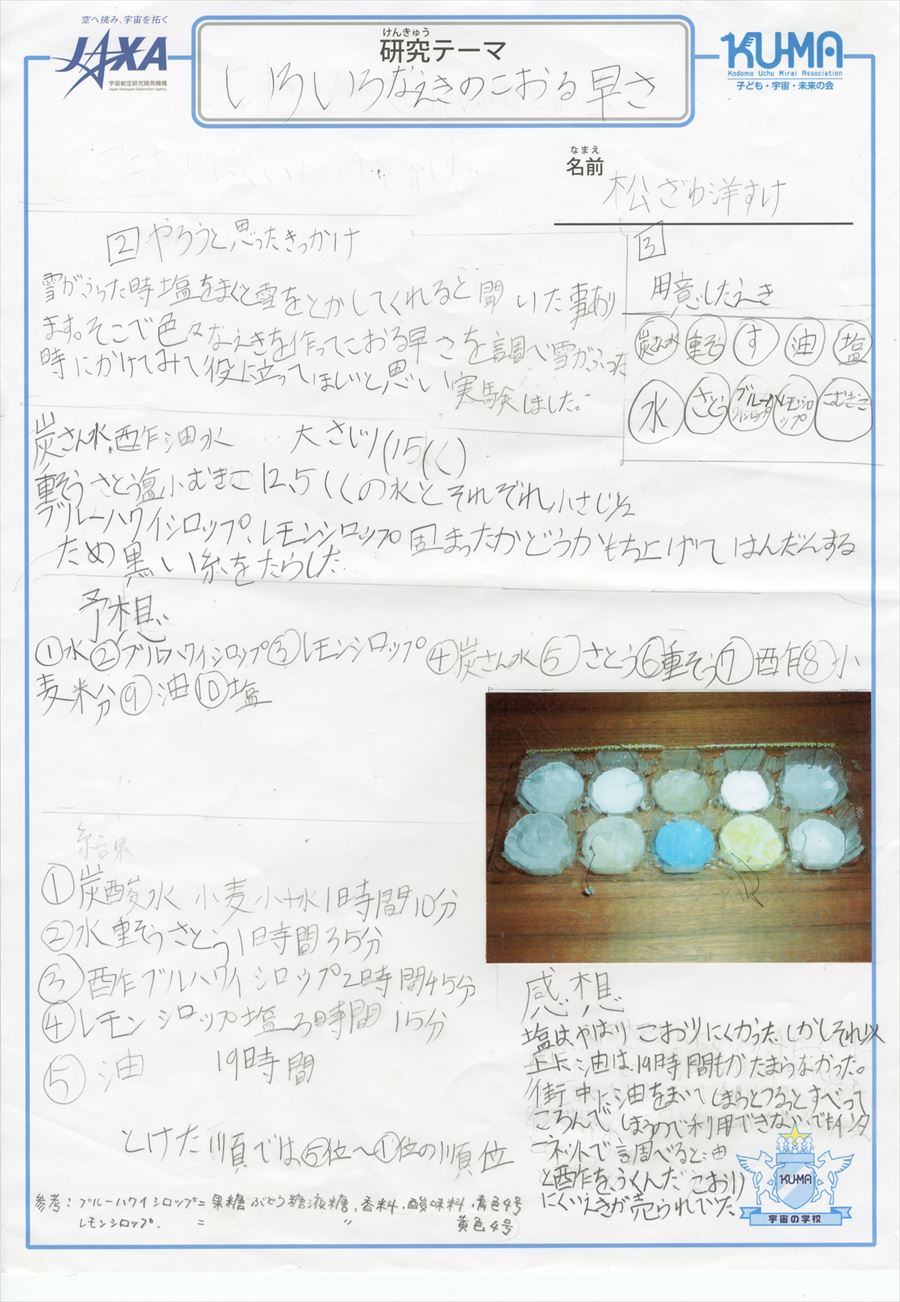 空へ挑み、宇宙を拓く
JAXA
宇宙航空研究開発機構
Japan Aerospace Exploration Agency
けんきゅう
研究テーマ
いろいろなえきのこおる早さ
KU-MA
Kodomo Uchu Mirai Association
子ども・宇宙・未来の会
なまえ
名前
松ざわ洋すけ
2 やろうと思ったきっかけ
雪がふった時塩をまくと雪をとかしてくれると聞いた事あり
ます。そこで色々なえきを作ってこおる早さを調べ雪がふった
時にかけてみて役に立ってほしいと思い実験しました。
3
用意したえき
炭さん水 重そう す 油 塩
水 さとう ブルーハワイシロップ レモンシロップ こむぎこ
炭さん水、酢油水 大さじ1(15cc)
重そうさとう塩小むぎこ12.5ccの水とそれぞれ小さじ1/2
ブルーハワイシロップ、レモンシロップ 固まったかどうかもち上げてはんだんする
ため黒い糸をたらした
予想
①水②ブルーハワイシロップ③レモンシロップ④炭さん水⑤さとう⑥重そう⑦酢⑧小
麦粉⑨油⑩塩
結果
①炭酸水 小麦小+水1時間10分
②水重そうさとう1時間35分
③酢ブルハワイシロップ2時間45分
④レモンシロップ塩3時間15分
⑤油 19時間
とけた順では⑤位へ①位の順位
感想
塩はやはりこおりにくかった。しかしそれ以
上に油は19時間もかたまらなかった。
街中に油をまいてしまうとつるっとすべって
ころんでしまうので利用できない。でもインタ
ーネットで調べると油
と酢をふくんだこおり
にくいえきが売られていた
KU-MA
宇宙の学校
参考：ブルーハワイシロップ＝果糖ぶどう糖液糖、香料、酸味料、青色4号
レモンシロップ. ＝ 〃 黄色4号